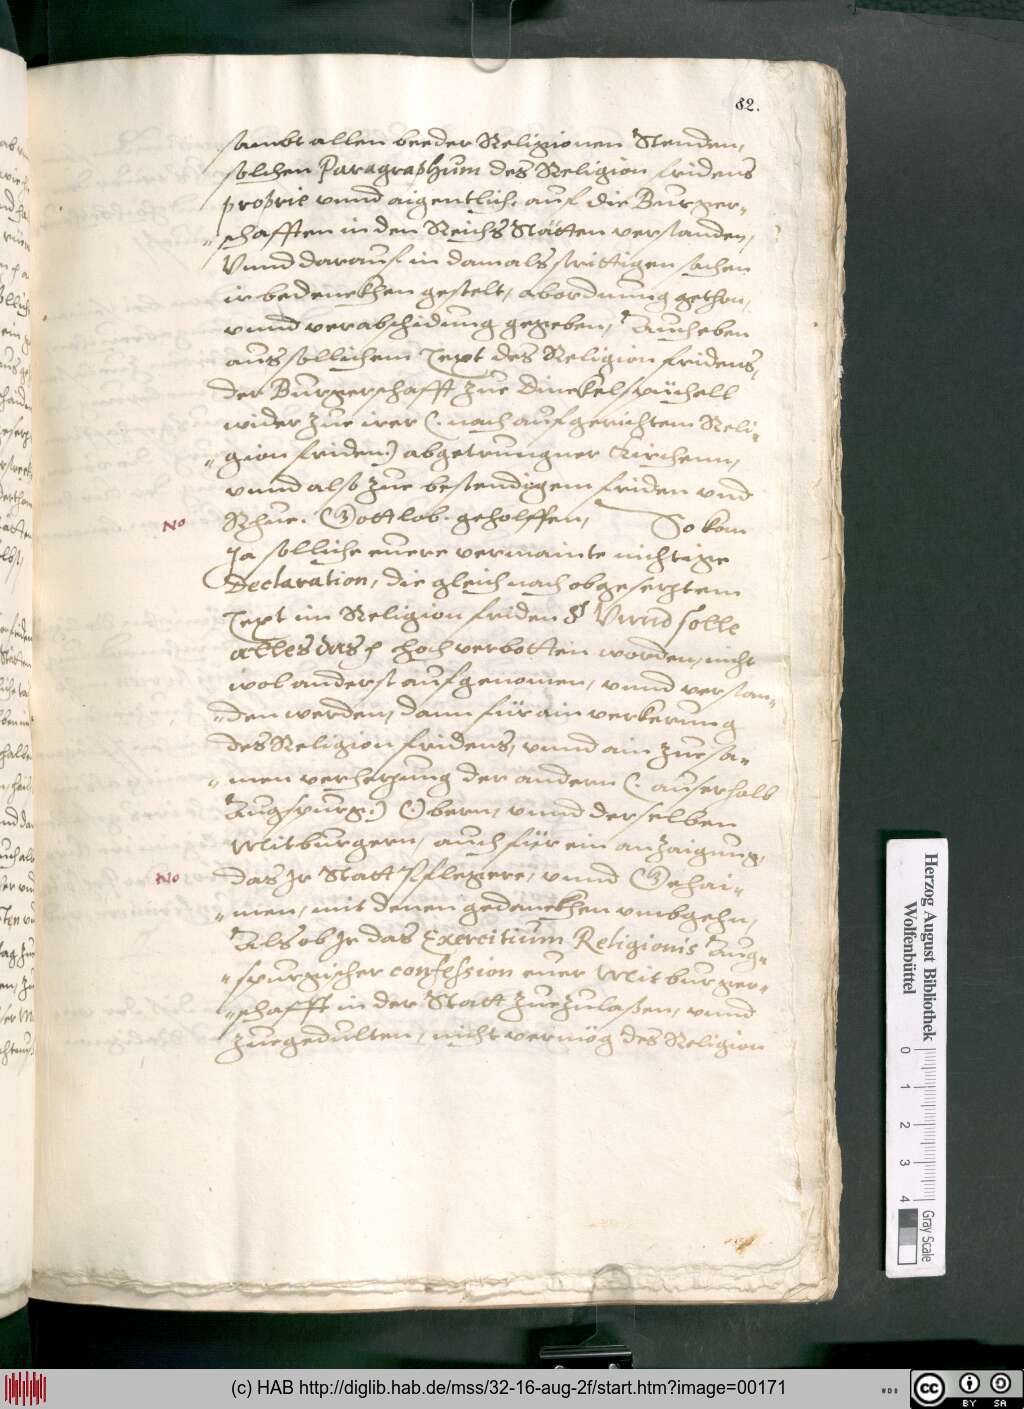 82.
sambt allen beeder Religionen Stenden,
solchen Paragraphum des Religion fridens
proprie vnnd aigentlich. auf die Burger-
"schafften in den Reichs Stätten verstanden,
Vnnd darauf in damals strittigen sachen
ir bedenckhen gestelt, abordnung gethan,
vnnd verabschidung gegeben, Auch eben
aus sollichem Text des Religion fridens,
der Burgerschafft zue Dinckelspüchell
wider zue irer (. nach aufgerichtem Reli-
"gion friden.) abgetrungner Kirchenn,
vnnd also zue bestendigem friden vnd
Rhue. Gott lob. geholffen, So kan
No
Ja solliche euere vermainte nichtige
Declaration, die gleich nach obgesetztem
Text im Religion friden § Vnnd solle
alles das hoch verbotten worden, nicht
wol anderst aufgenomen, vnnd verstan-
"den werden, dann für ain verkerung
des Religion fridens, vnnd ain zuesa-
"men verhetzung der andern (. auserhalb
Augspurg.) Obern, vnnd derselben
Mitburgern, auch für ein anzaigung,
No
das Jr Statt Pflegere, vnnd Gehai-
"men, mit denen gedenckhen vmbgehn,
Als ob Jr das Exercitium Religionis Aug-
"spurgischer confession euer Mitburger-
"schafft in der Statt zuezulaßen, vnnd
zuegedulten, nicht vermög des Religion
Herzog August Bibliothek
Wolfenbüttel
0 1 2 3 4
Gray Scale
(c) HAB http://diglib.hab.de/mss/32-16-aug-2f/start.htm?image=00171
WDB
cc BY SA